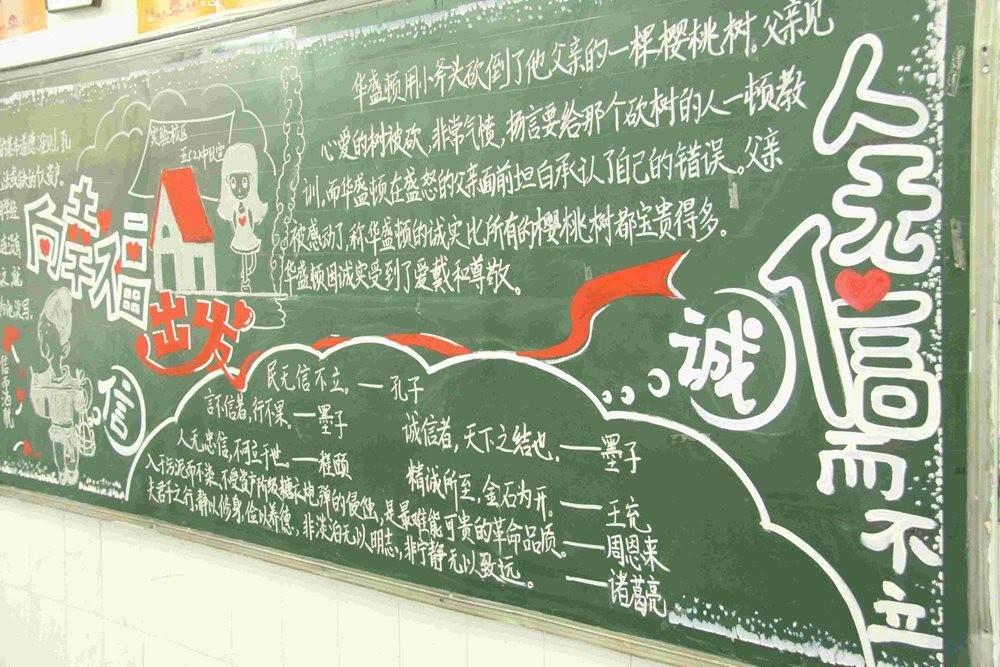 华盛顿用小斧头砍倒了他父亲的一棵樱桃树。父亲见
心爱的树被砍,非常气愤,扬言要给那个砍树的人一顿教
训。而华盛顿在盛怒的父亲面前坦白承认了自己的错误。父亲
被感动了,称华盛顿的诚实比所有的樱桃树都宝贵得多。
华盛顿因诚实受到了爱戴和尊敬。
人无信而不立
诚
信
向幸福
出发
实验校区
民无信不立。—孔子
言不信者,行不果。—墨子
诚信者,天下之结也。—墨子
人无忠信,不可立于世。—程颐
精诚所至,金石为开。—王充
入于污泥而不染、不受资产阶级糖衣炮弹的侵蚀,是最难能可贵的革命品质。—周恩来
夫君子之行,静以修身,俭以养德,非淡泊无以明志,非宁静无以致远。—诸葛亮